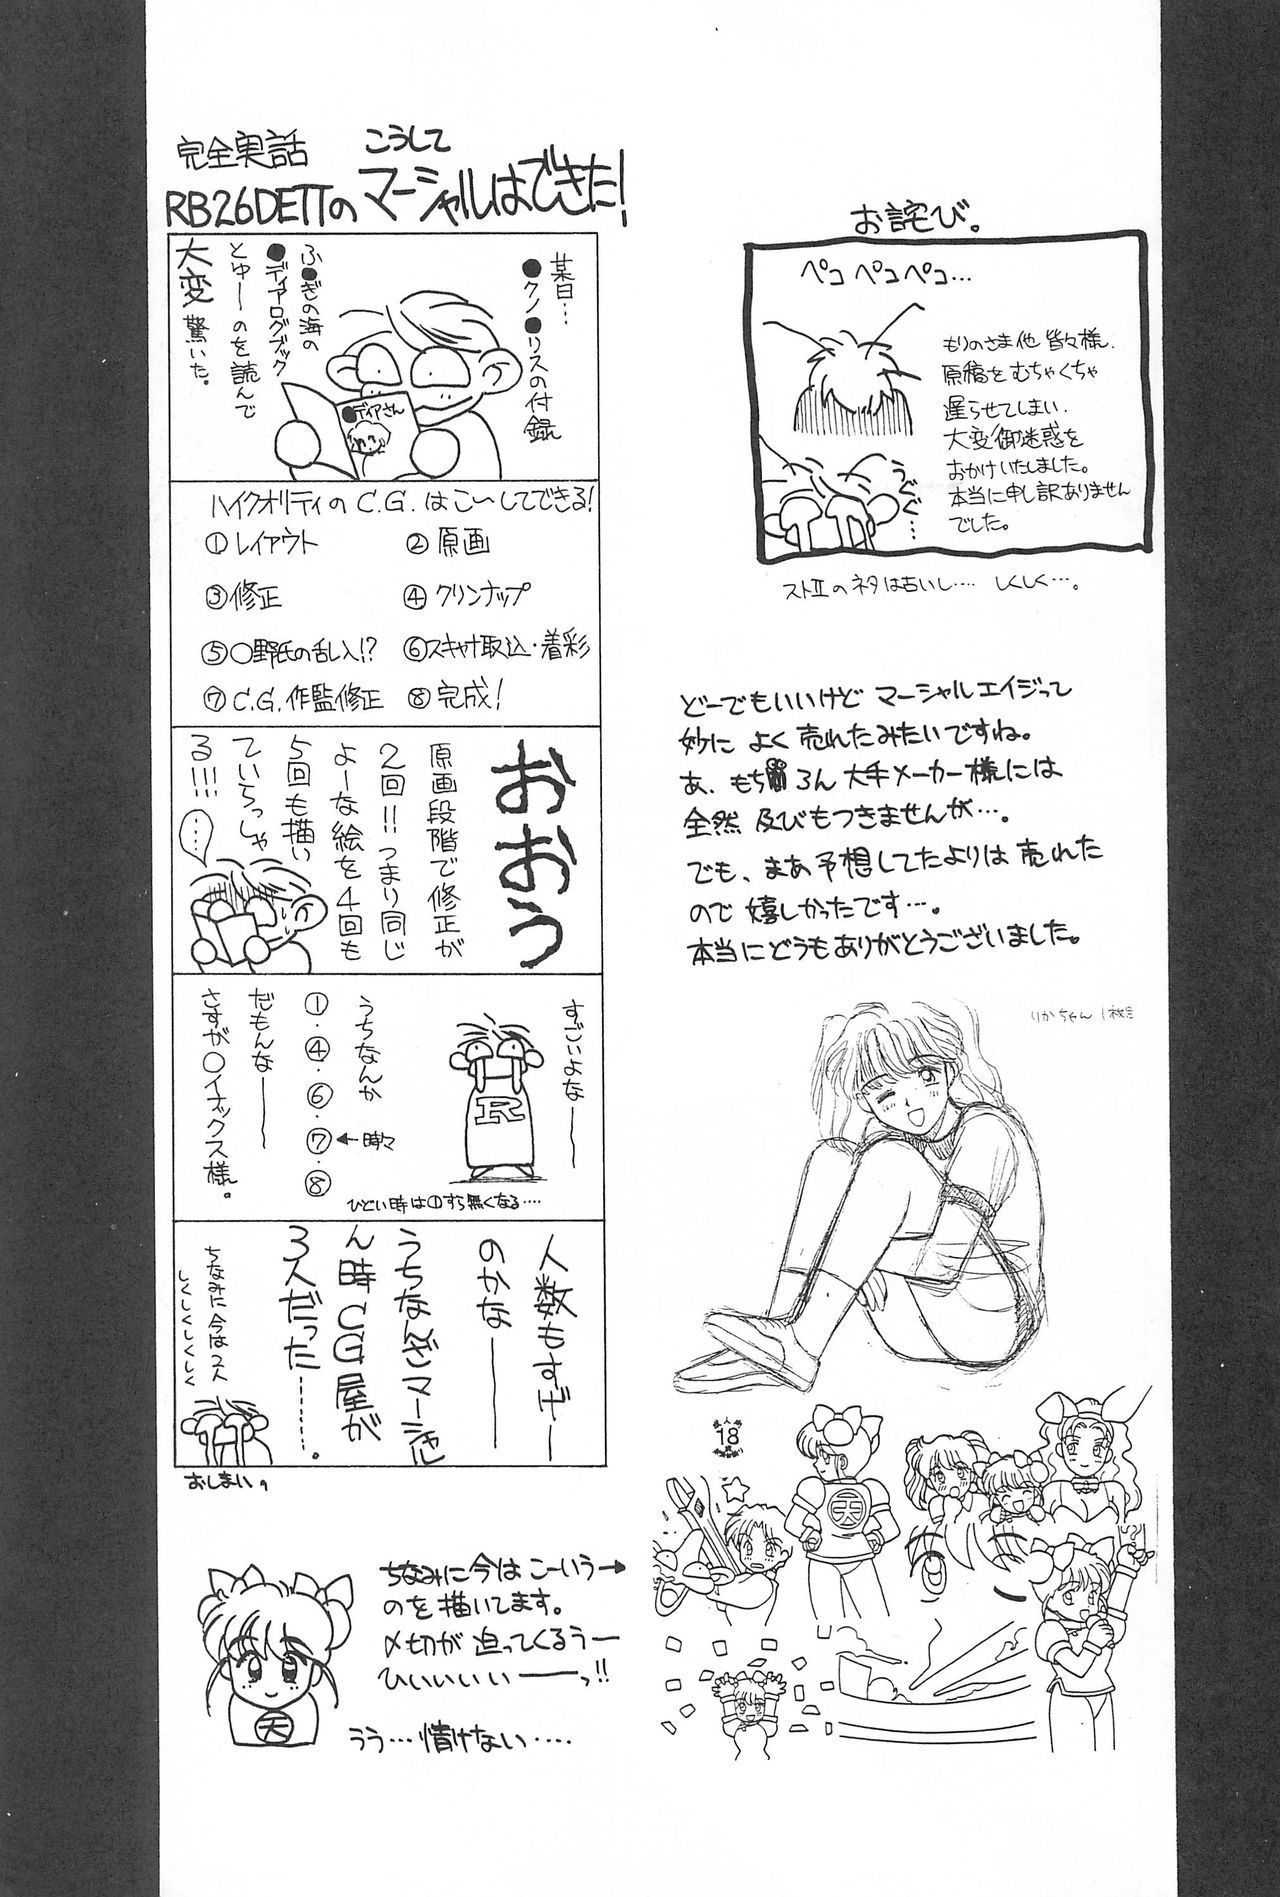 完全実話
こうして
RB26DETTのマーシャルはできた!
某日…
●クノ●リスの付録
ふ●ぎの海の
●ディアログブック
とゆーのを読んで
大変驚いた。
●ディアさん
ハイクオリティのC.G.はこ〜してできる!
①レイアウト
②原画
③修正
④クリンナップ
⑤○野氏の乱入!?
⑥スキャナ取込・着彩
⑦C.G.作監修正
⑧完成!
おおう
原画段階で修正が
2回!!つまり同じ
よーな絵を4回も
5回も描い
ていらっしゃ
る!!!
……
すごいよな――
R
うちなんか
①・④・⑥・⑦・⑧
←時々
ひどい時は①すら無くなる‥‥
だもんな――
さすが○イナックス様。
人数もすげ―
のかな――
うちなんぞマーシャル
ん時CG屋が
3人だった………。
ちなみに今は2人
しくしくしくしく
おしまい。
ちなみに今は こーいう→
のを描いてます。
〆切が 迫ってくるうー
ひぃぃぃぃ――っ!!
天
うう…情けない‥‥
お詫び。
ペコ ペコ ペコ…
もりのさま他 皆々様、
原稿を むちゃくちゃ
遅らせてしまい、
大変御迷惑を
おかけいたしました。
本当に申し訳ありません
でした。
うぐぐ…
ストⅡのネタは古いし…. しくしく…。
どーでもいいけど マーシャルエイジって
妙に よく 売れたみたいですね。
あ、もちろん 大手メーカー様には
全然 及びもつきませんが…。
でも、まあ予想してたよりは 売れた
ので 嬉しかったです…。
本当にどうもありがとうございました。
りかちゃん
18
天